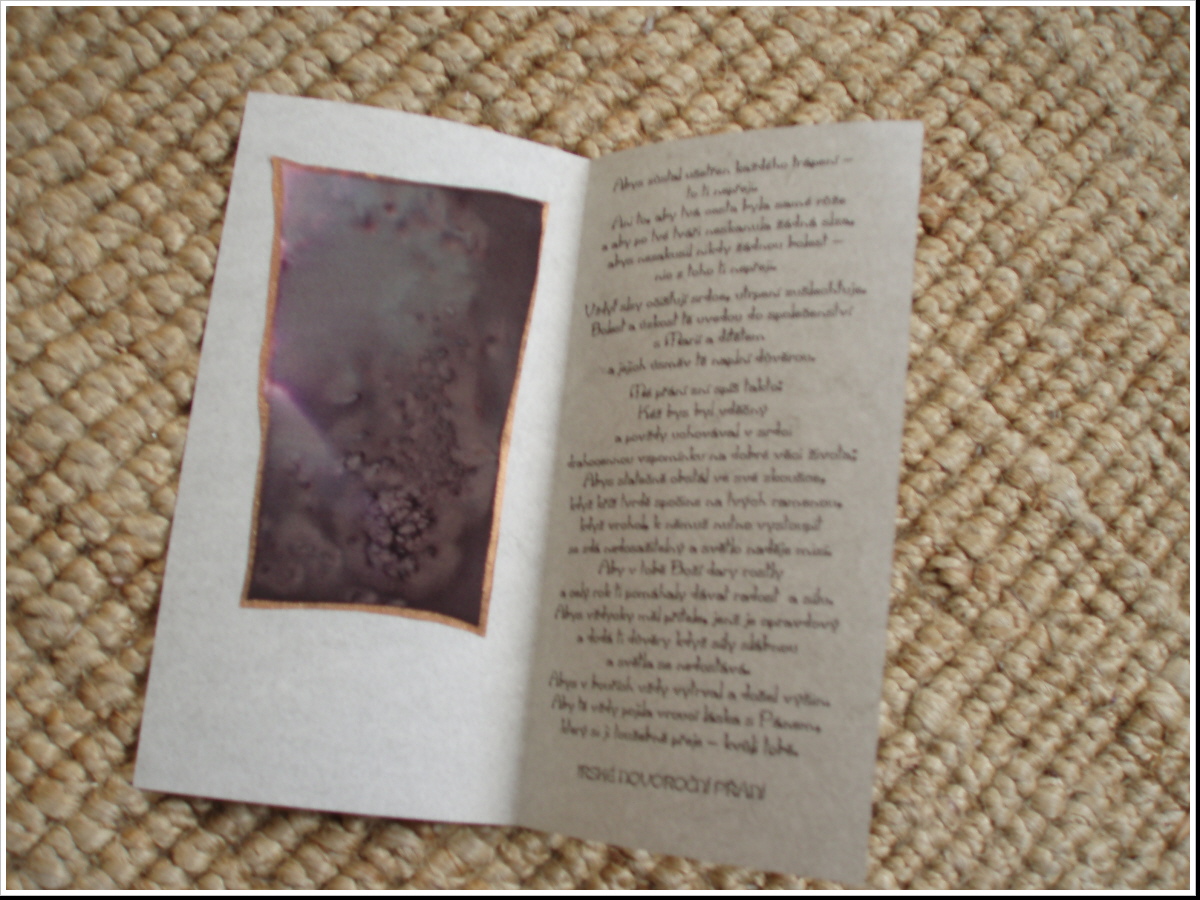 Abys zůstal ušetřen každého trápení –
to ti nepřeji.
Ani to, aby tvá cesta byla samé růže
a aby po tvé tváři neskanula žádná slza,
abys nezakusil nikdy žádnou bolest –
nic z toho ti nepřeji.
Vždyť aby očistují srdce, utrpení zušlechťuje.
Bolest a úzkost tě uvedou do společenství
s Marií a dítětem
a jejich úsměv tě naplní důvěrou.
Mé přání zní spíš takto:
Kéž bys byl vděčný
a povždy uchovával v srdci
drahocennou vzpomínku na dobré věci života;
Abys statečně obstál ve své zkoušce,
když kříž tvrdě spočine na tvých ramenou,
když vrchol, k němuž nutno vystoupit
se zdá nedosažitelný a světlo naděje mizí.
Aby v tobě Boží dary rostly
a celý rok ti pomáhaly dávat radost a sílu.
Abys vždycky měl přítele, jenž je opravdový
a dodá ti důvěry když síly slábnou
a světla se nedostává.
Abys v bouřích vždy vytrval a došel výšin.
Aby tě vždy pojila vroucí láska s Pánem,
který si jí tvé přeje – kvůli tobě.
IRSKÉ NOVOROČNÍ PŘÁNÍ